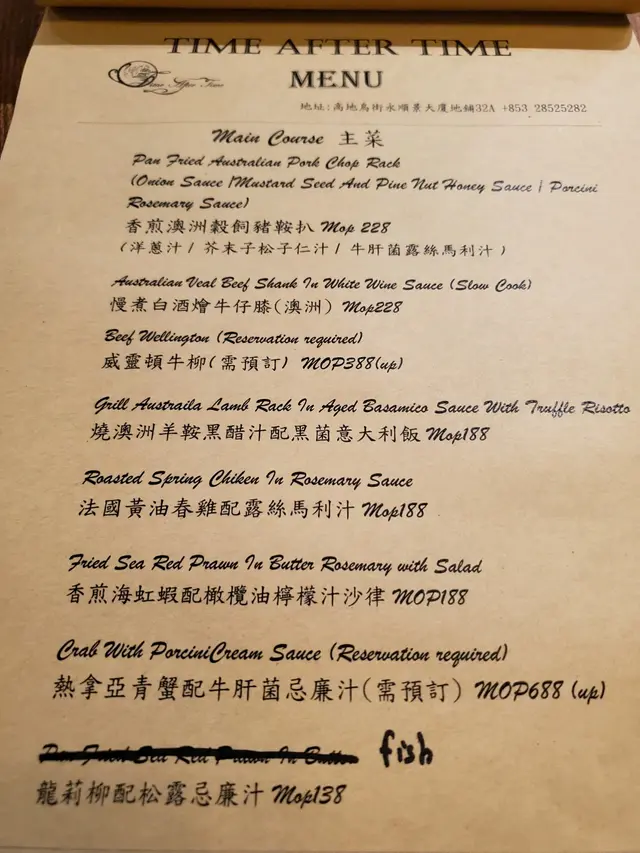 TIME AFTER TIME
Time After Time
MENU
地址:高地烏街永順景大廈地鋪32A +853 28525282
Main Course 主菜
Pan Fried Australian Pork Chop Rack
(Onion Sauce |Mustard Seed And Pine Nut Honey Sauce | Porcini
Rosemary Sauce)
香煎澳洲穀飼豬鞍扒 Mop 228
(洋蔥汁 / 芥末子松子仁汁 / 牛肝菌露絲馬利汁 )
Australian Veal Beef Shank In White Wine Sauce (Slow Cook)
慢煮白酒燴牛仔膝(澳洲) Mop228
Beef Wellington (Reservation required)
威靈頓牛柳(需預訂) MOP388(up)
Grill Austraila Lamb Rack In Aged Basamico Sauce With Truffle Risotto
燒澳洲羊鞍黑醋汁配黑菌意大利飯 Mop188
Roasted Spring Chiken In Rosemary Sauce
法國黃油春雞配露絲馬利汁 Mop188
Fried Sea Red Prawn In Butter Rosemary with Salad
香煎海虹蝦配橄欖油檸檬汁沙律 MOP188
Crab With PorciniCream Sauce (Reservation required)
熱拿亞青蟹配牛肝菌忌廉汁(需預訂) MOP688 (up)
Pan Fried Sea Red Prawn In Butter fish
龍莉柳配松露忌廉汁 Mop138